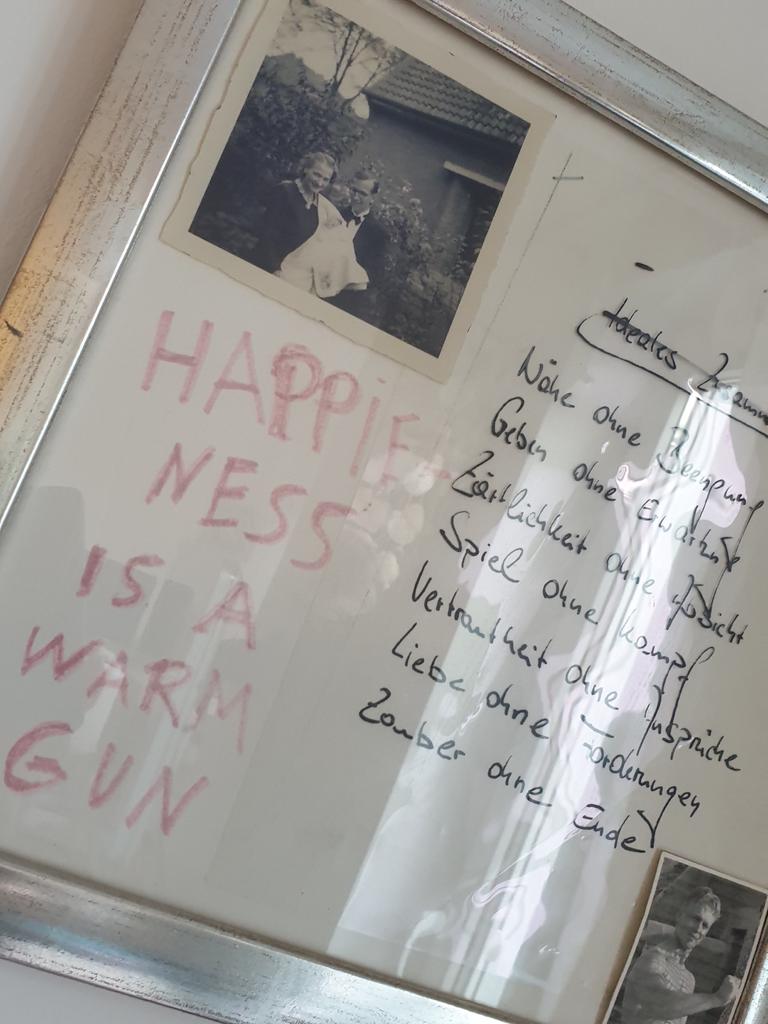 HAPPiE-
NESS
IS A
WARM
GUN
Ideales
Nähe ohne Beengung
Geben ohne Erwartung
Zärtlichkeit ohne Absicht
Spiel ohne Kampf
Vertrautheit ohne Ansprüche
Liebe ohne Forderungen
Zauber ohne Ende